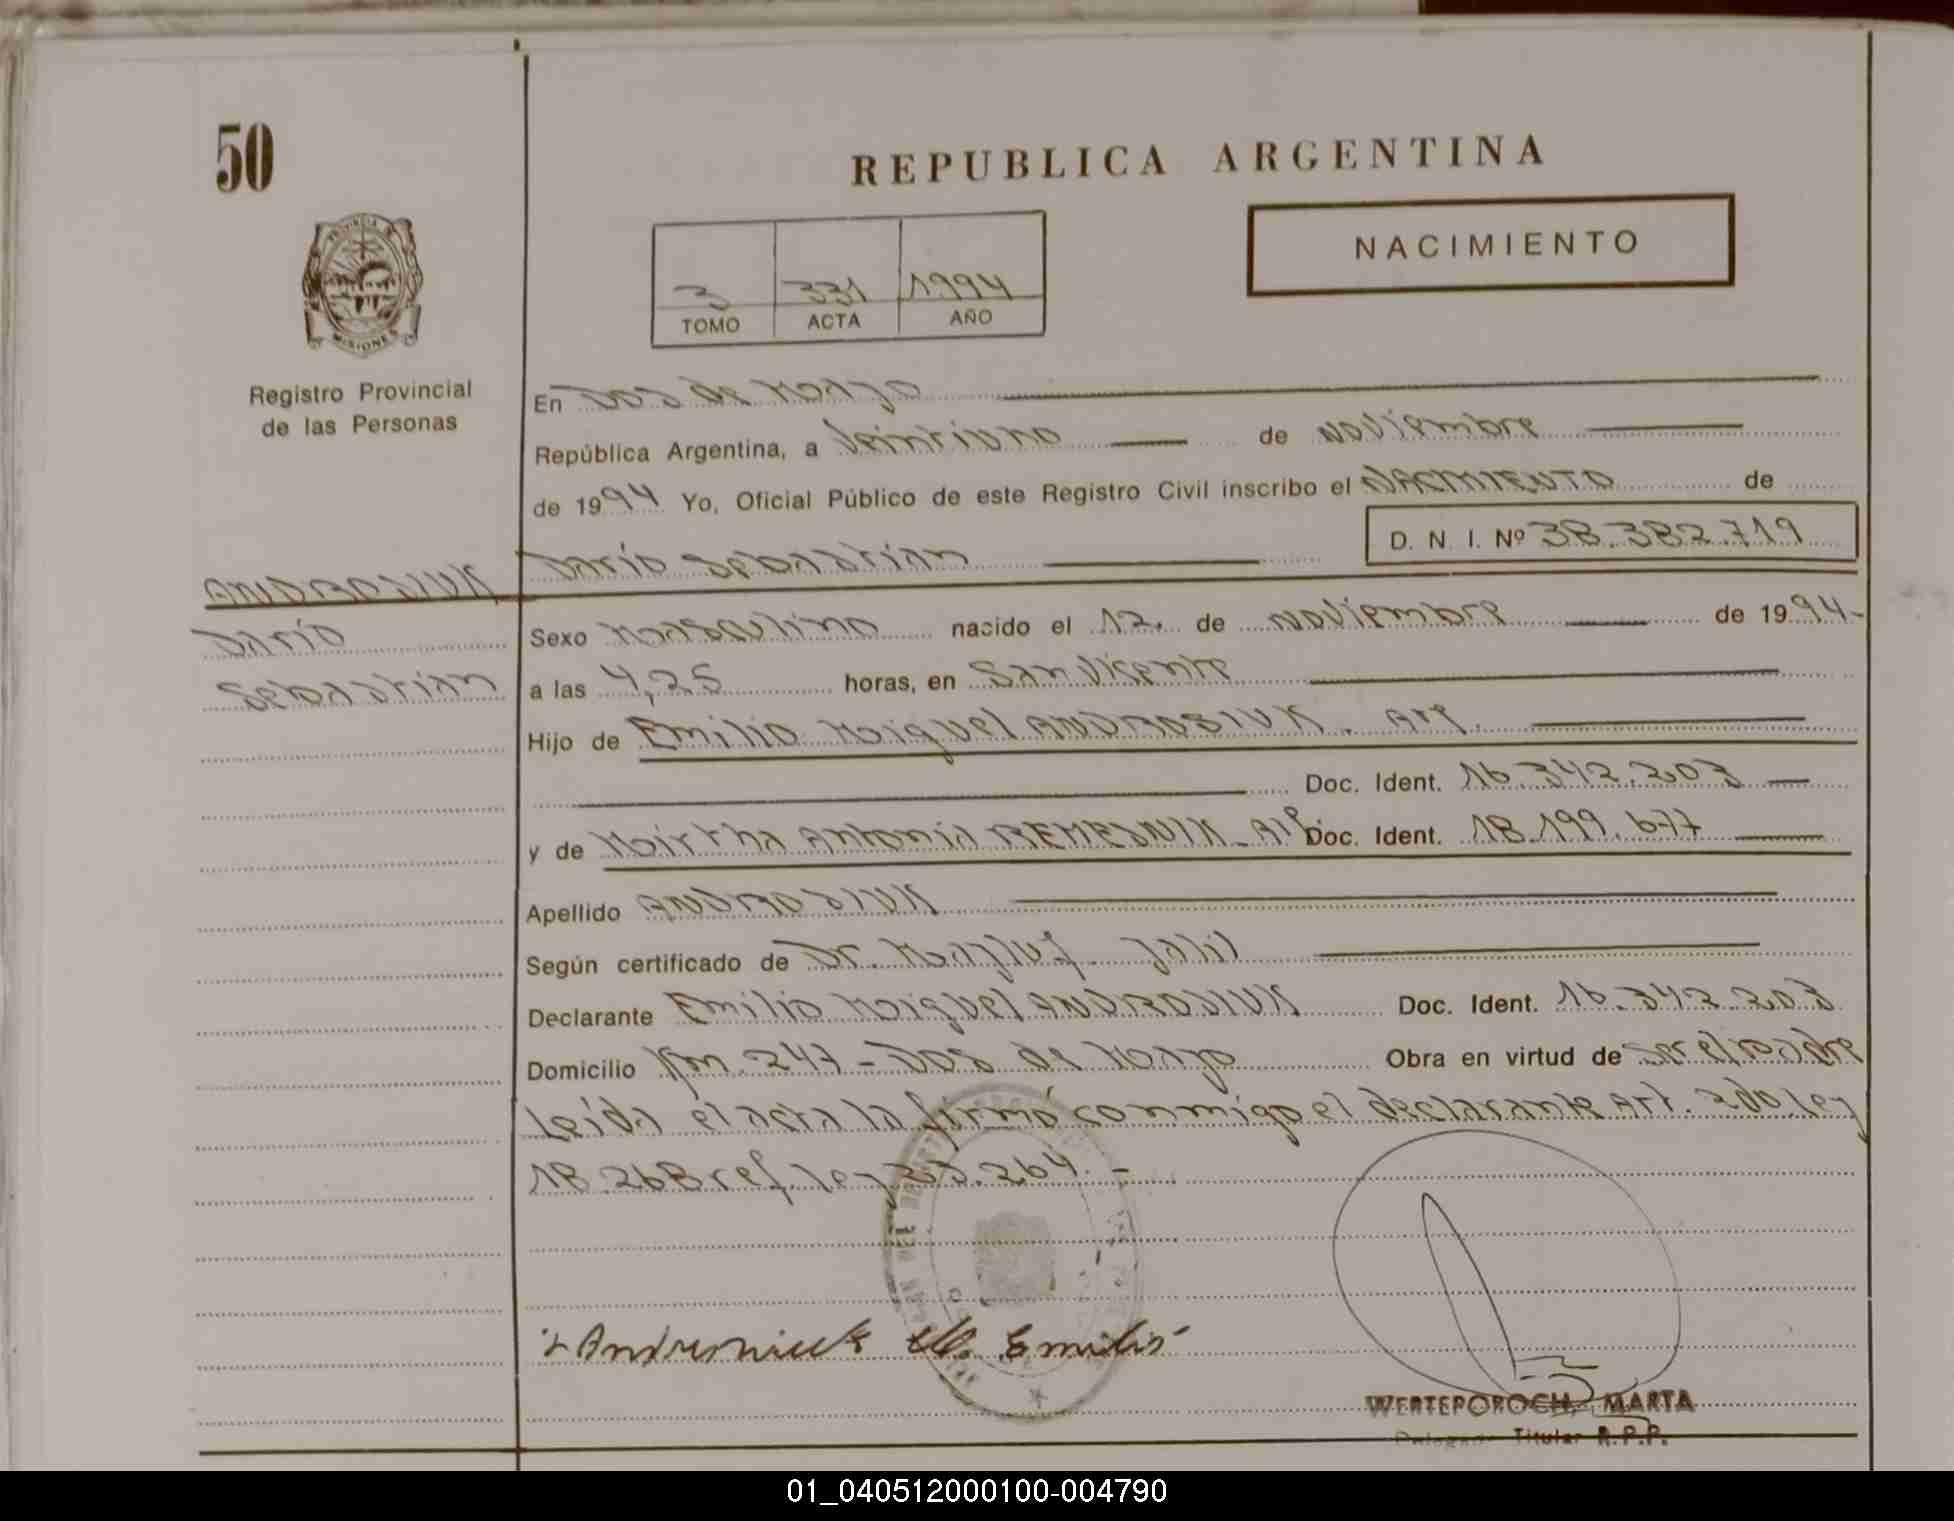 50
REPUBLICA ARGENTINA
NACIMIENTO
3 331 1994
TOMO ACTA AÑO
MISIONES
Registro Provincial
de las Personas
En Dos de Mayo
República Argentina, a Veintiuno de Noviembre
de 1994 Yo, Oficial Público de este Registro Civil inscribo el NACIMIENTO de
D. N. I. Nº 38.382.719
Darío Sebastián
ANDROSIUK
Darío
Sebastián
Sexo Masculino nacido el 12. de Noviembre de 1994-
a las 4,25 horas, en San Vicente
Hijo de Emilio Miguel ANDROSIUK. Arg.
Doc. Ident. 16.342.203
y de Mirtha Antonia Doc. Ident. 18.199.677
Apellido ANDROSIUK
Según certificado de Dr. Mazluf Jalil
Declarante Emilio Miguel ANDROSIUK Doc. Ident. 16.342.203
Domicilio Km. 247 - Dos de Mayo Obra en virtud de ser el padre
Leída el acta la firmó conmigo el declarante Art. 2do. Ley
18.268 ref. ley 23.264.-
WERTEPOROCH, MARTA
Titular R.P.P.
01_040512000100-004790